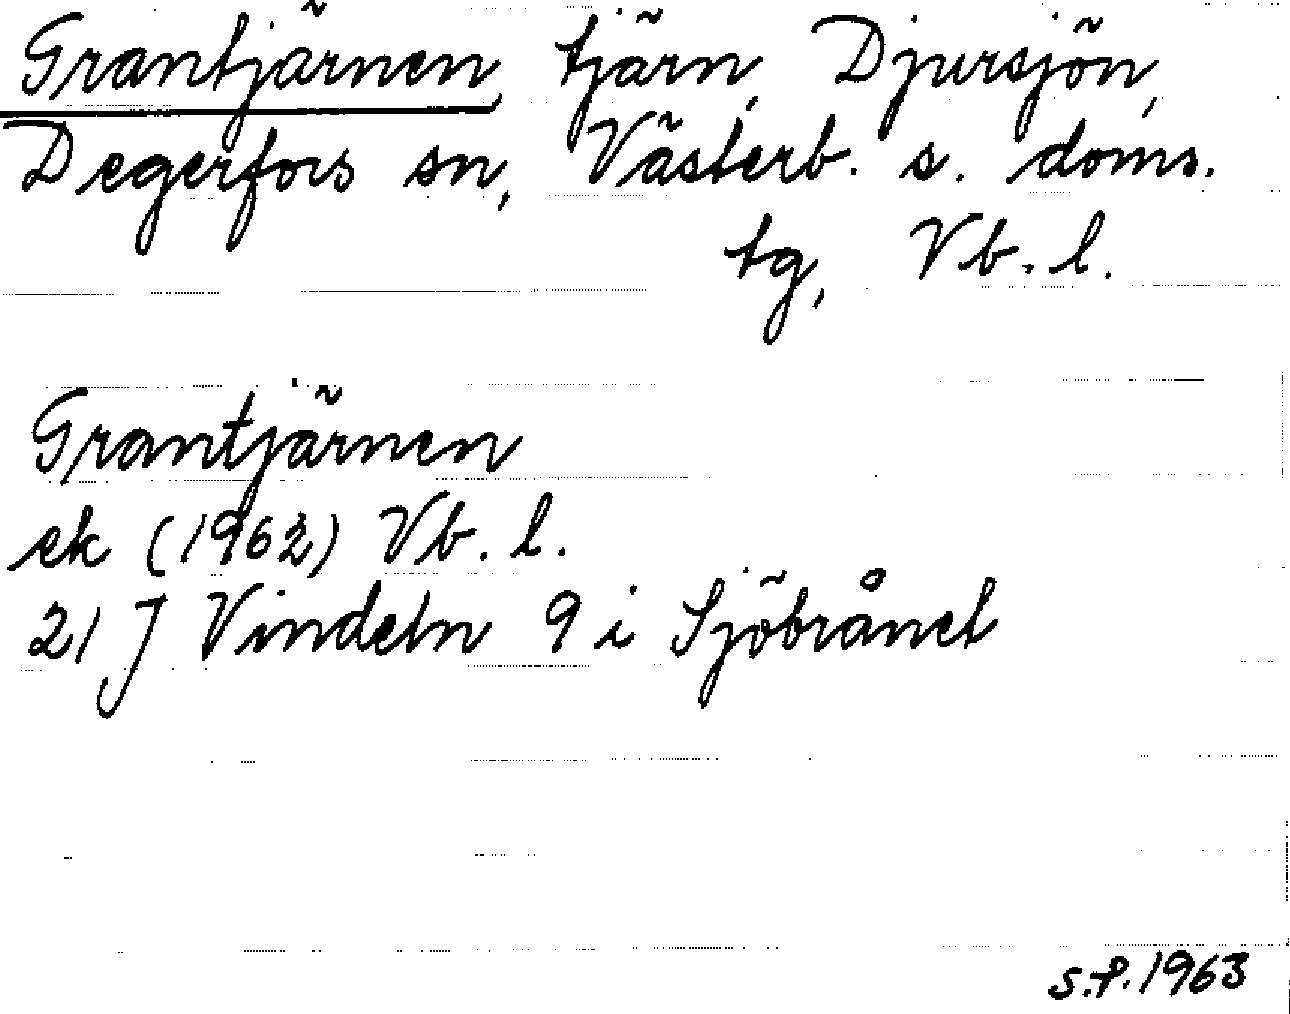 Grantjärnen, tjärn, Djursjön,
Degerfors sn, Västerb. s. doms.
tg, Vb. l.
Grantjärnen
ek (1962) Vb. l.
21 J Vindeln 9 i Sjöbrånet
s.f. 1963